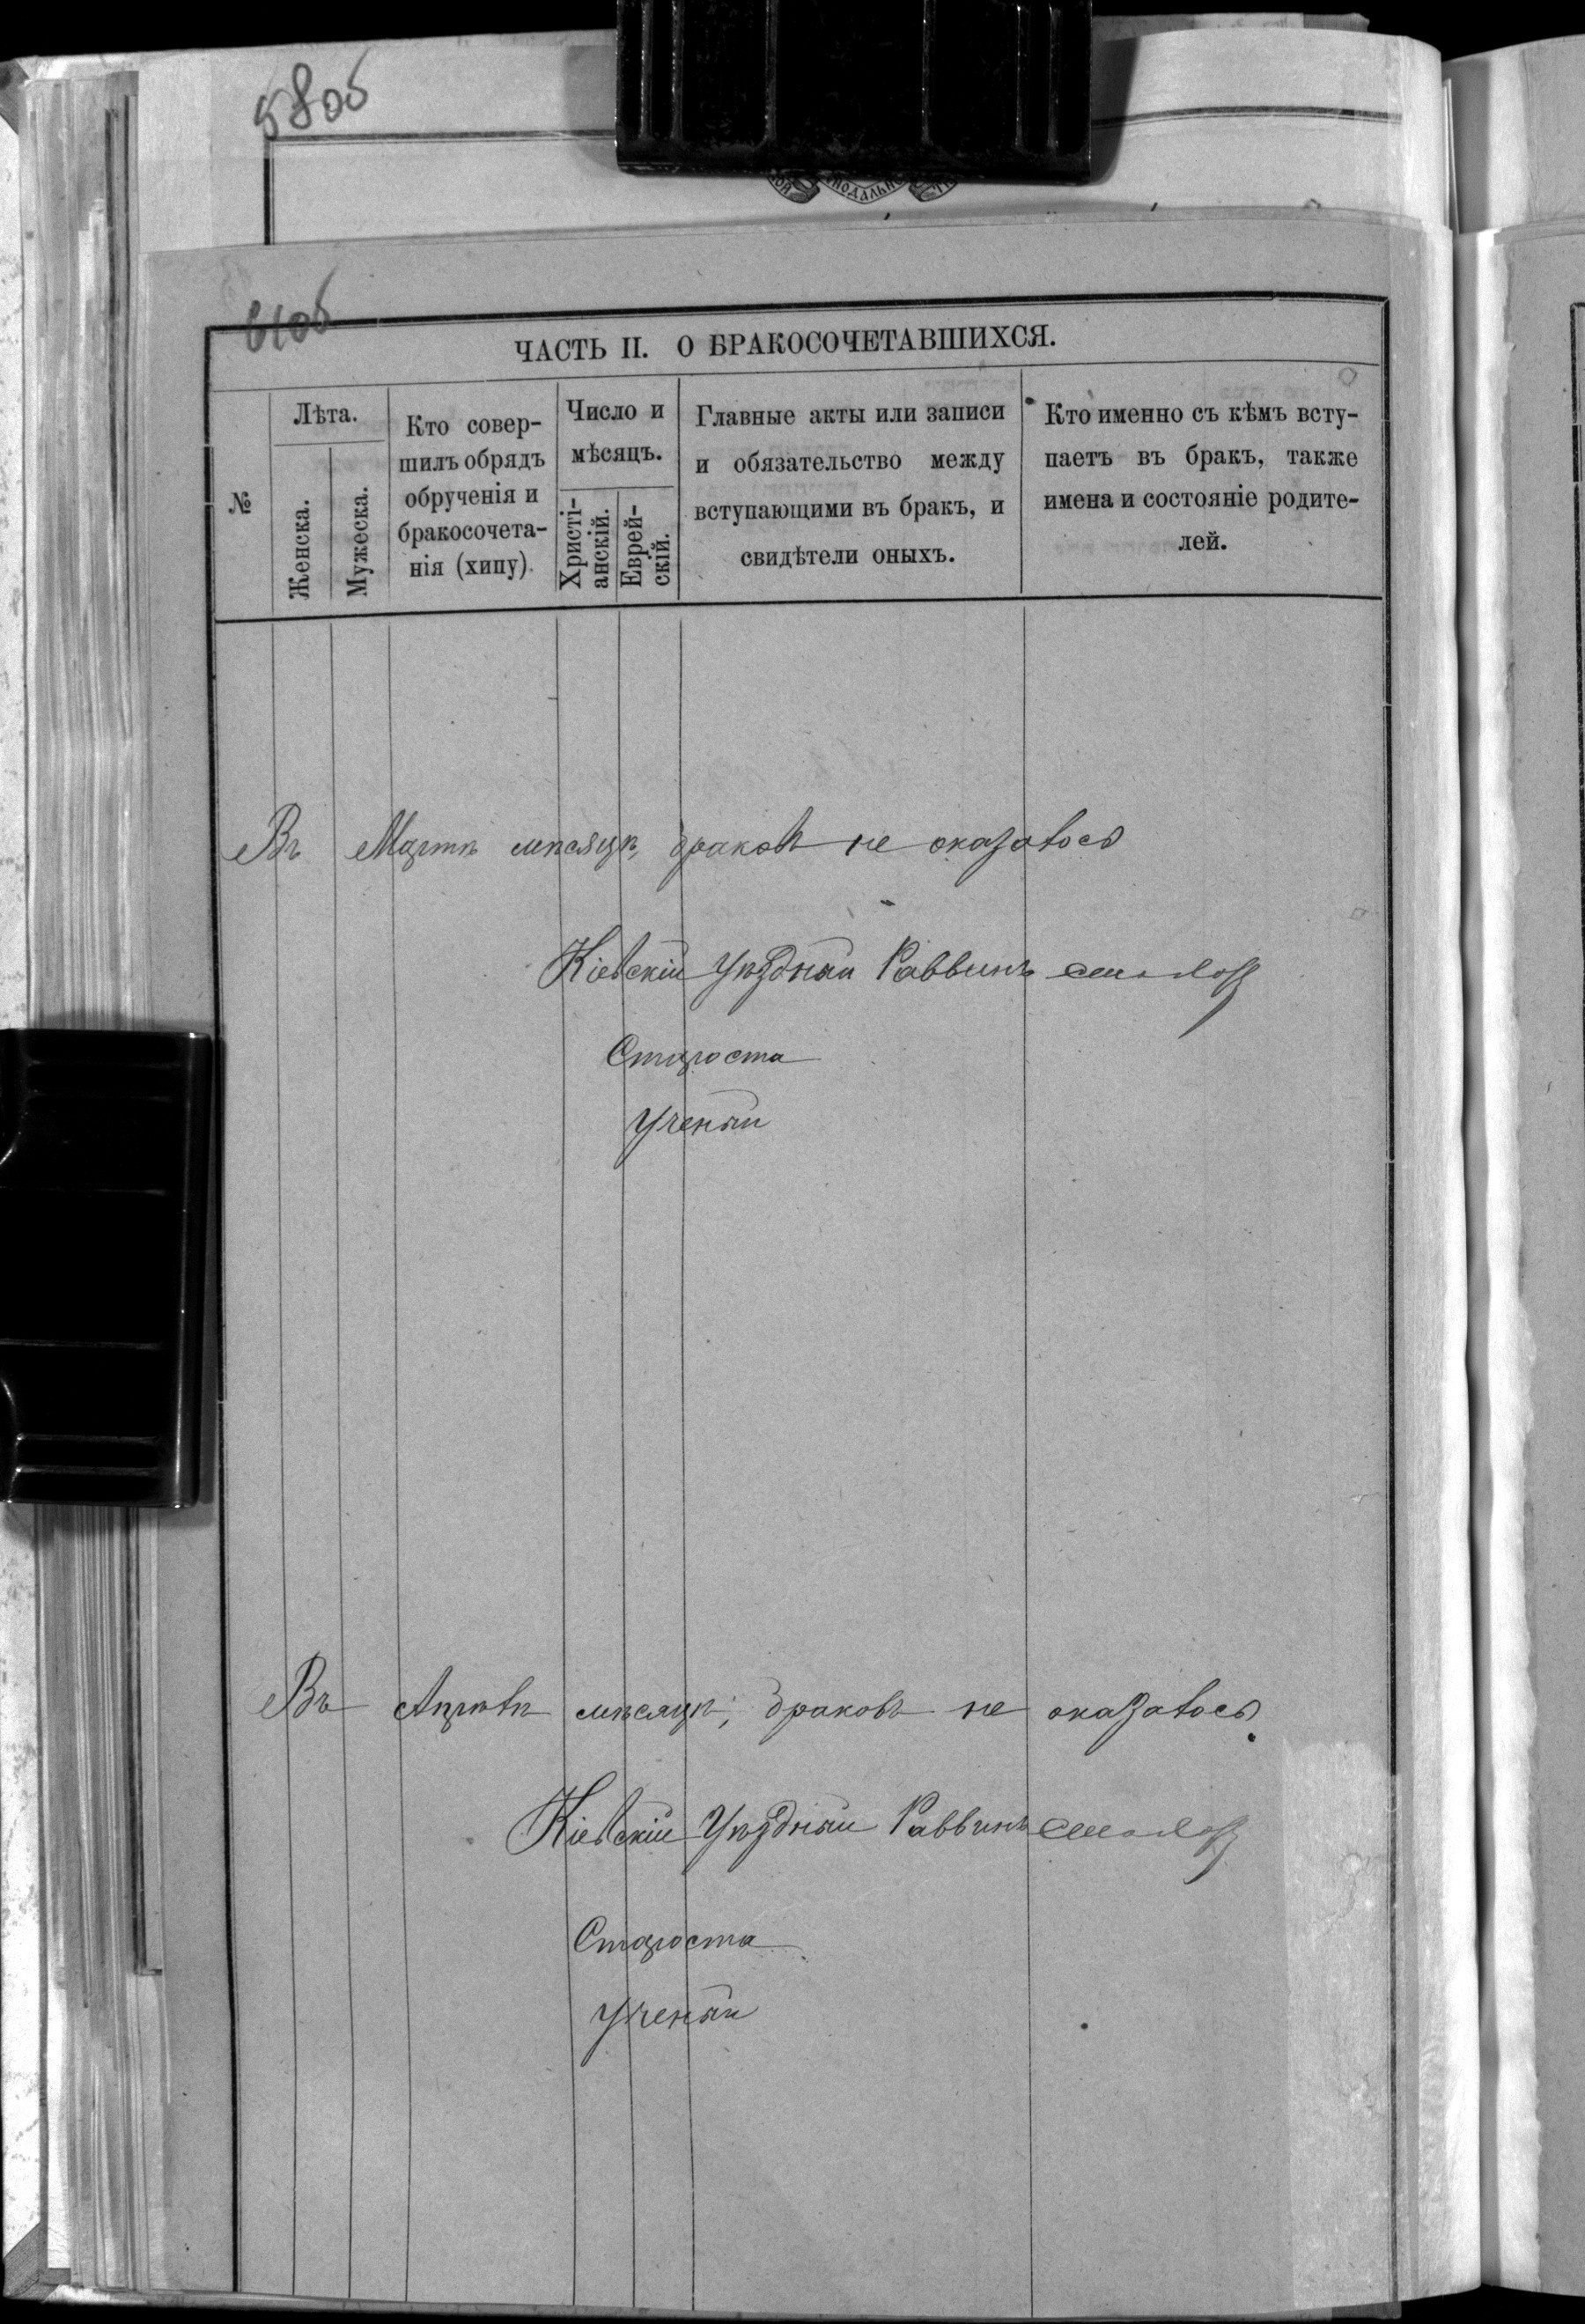 58об
61об
ЧАСТЬ II. О БРАКОСОЧЕТАВШИХСЯ.
№
Лѣта.
Женска.
Мужеска.
Кто совер-
шилъ обрядъ
обрученія и
бракосочета-
нія (хипу).
Число и
мѣсяцъ.
Христі-
анскій.
Еврей-
скій.
Главные акты или записи
и обязательство между
вступающими въ бракъ, и
свидѣтели оныхъ.
Кто именно съ кѣмъ всту-
паетъ въ бракъ, также
имена и состояніе родите-
лей.
Въ Мартѣ мѣсяцѣ, браковъ не оказалось
Кіевскій Уѣздный Раввинъ
Староста
Ученый
Въ Апрѣлѣ мѣсяцѣ, браковъ не оказалось.
Кіевскій Уѣздный Раввинъ
Староста
Ученый